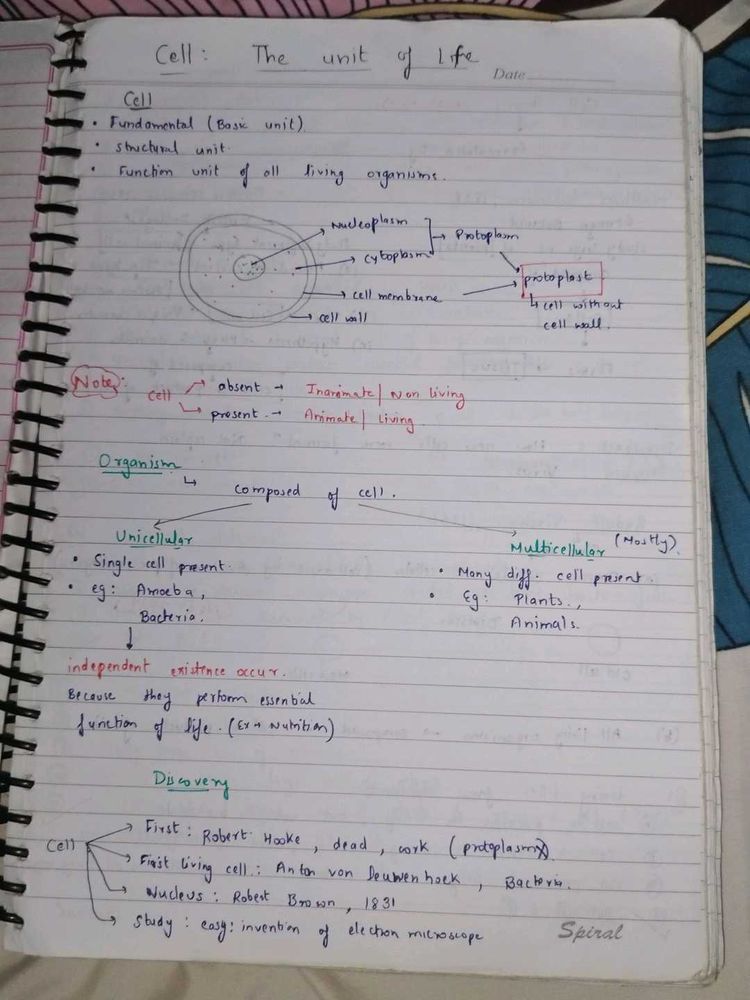 Cell: The unit of life
Date
Cell
• Fundamental (Basic unit)
• structural unit.
• Function unit of all living organisms.
Nucleoplasm
cytoplasm → Protoplasm
cell membrane
cell wall
protoplast
↳ cell without
cell wall.
Note: cell → absent → Inanimate / Non living
→ present → Animate / Living.
Organism
↳ composed of cell.
Unicellular
• Single cell present.
• eg: Amoeba,
Bacteria.
↓
independent existence occur.
Because they perform essential
function of life. (Ex → Nutrition)
Multicellular (Mostly).
• Many diff. cell present.
• Eg: Plants,
Animals.
Discovery
Cell → First: Robert Hooke, dead, cork (protoplasm x).
→ First living cell: Anton von Leuwenhoek, Bacteria.
→ Nucleus: Robert Brown, 1831
→ Study: easy: invention of electron microscope
Spiral